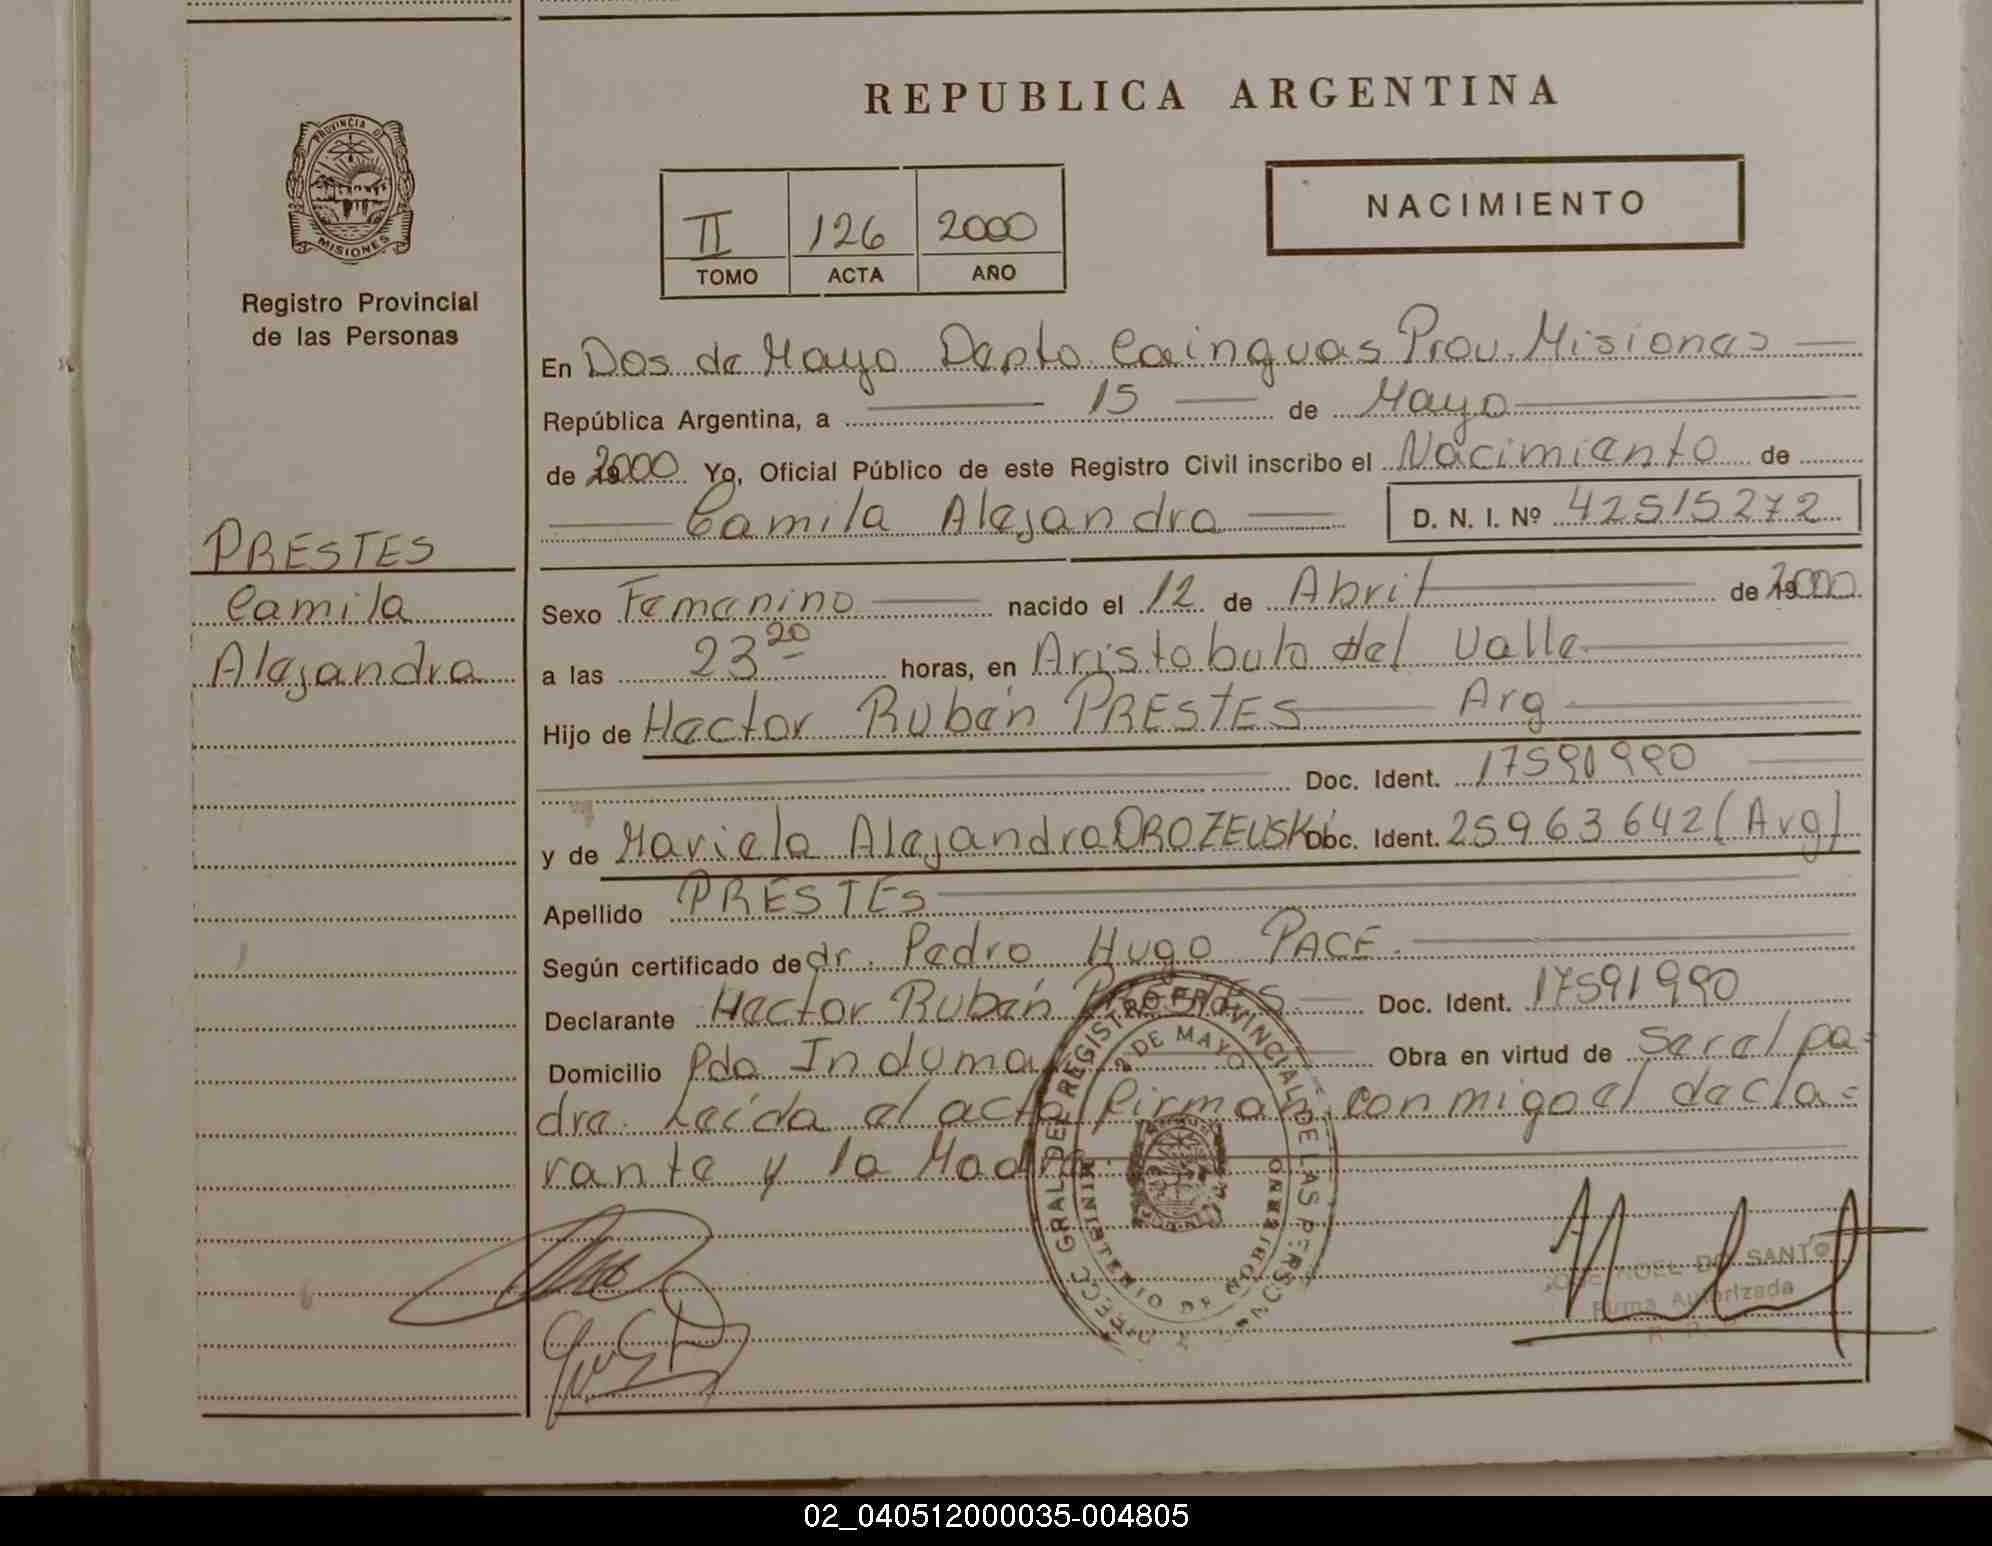 REPUBLICA ARGENTINA
PROVINCIA DE
MISIONES
Registro Provincial
de las Personas
II 126 2000
TOMO ACTA AÑO
NACIMIENTO
En Dos de Mayo Depto Cainguas Prov. Misiones
República Argentina, a 15 de Mayo
de 2000 Yo, Oficial Público de este Registro Civil inscribo el Nacimiento de
Camila Alejandra D. N. I. Nº 42515272
PRESTES
Camila
Alejandra
Sexo Femenino nacido el 12 de Abril de 2000
a las 23 20 horas, en Aristobulo del Valle
Hijo de Hector Rubén PRESTES Arg
Doc. Ident. 17591990
y de Mariela Alejandra DROZEUSKI Doc. Ident. 25963642 (Arg)
Apellido PRESTES
Según certificado de dr. Pedro Hugo PACE.
Declarante Hector Rubén Prestes Doc. Ident. 17591990
Domicilio Pdo Induma Obra en virtud de ser el pa=
dre. Leída el acta firman conmigo el decla=
rante y la Madre.
DIRECC. GRAL. DEL REGISTRO PROVINCIAL DE LAS PERSONAS
2 DE MAYO
MINISTERIO DE GOBIERNO
DO SANTO
Firma Autorizada
02_040512000035-004805